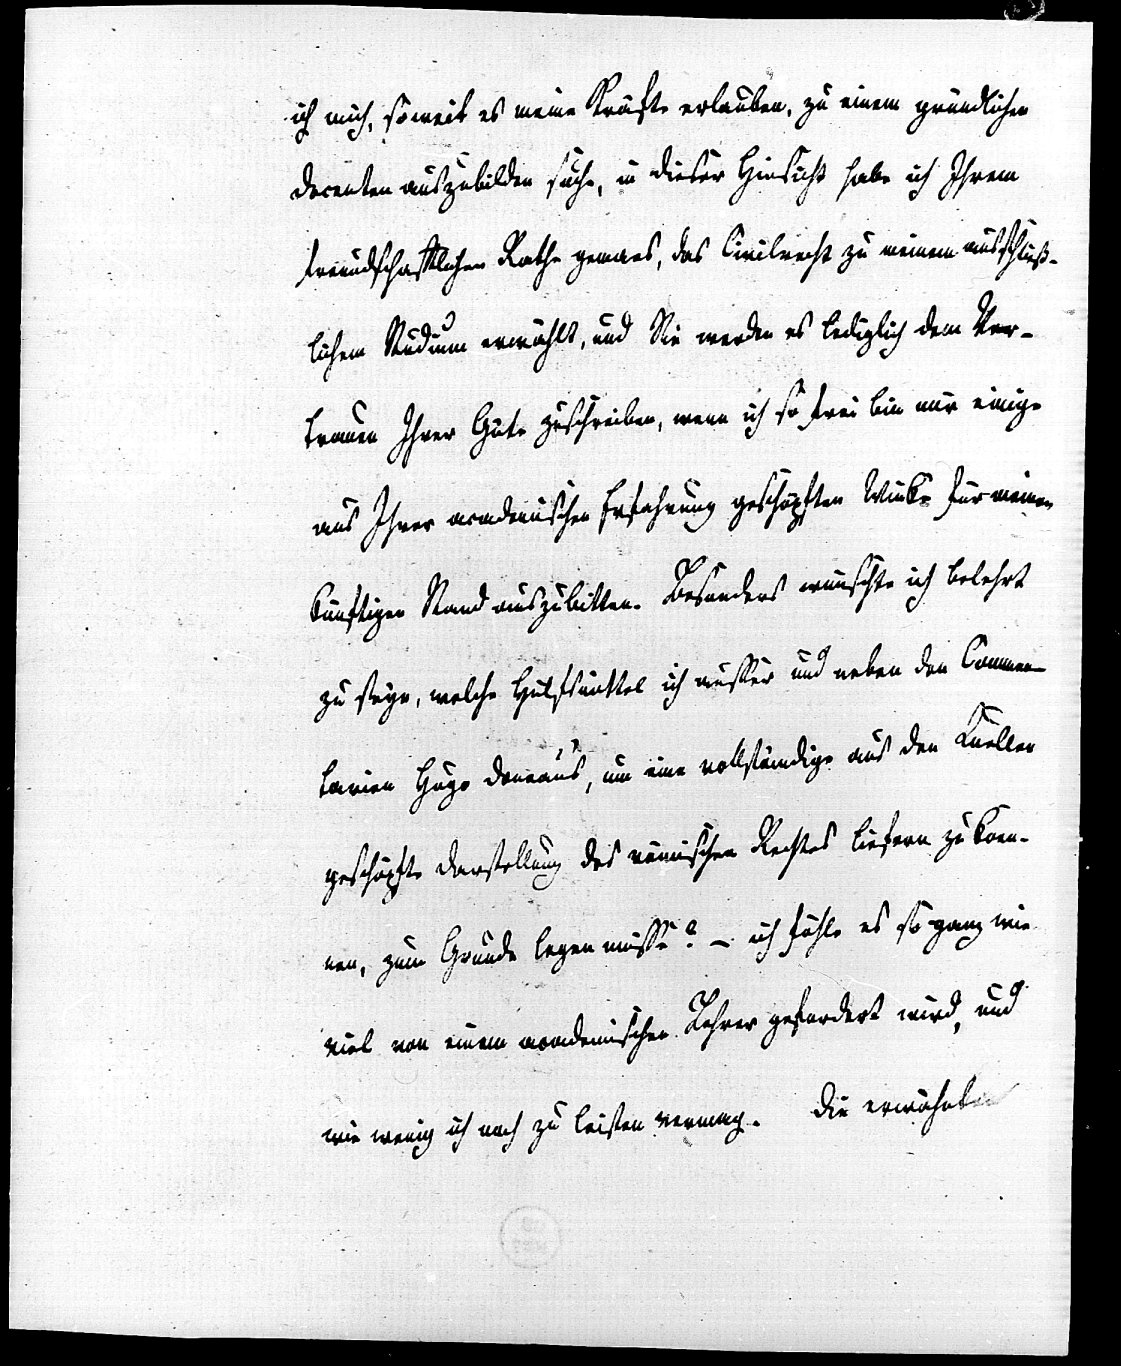 ich mich, soweit es meine Kräfte erlauben, zu einem gründlichen
Docenten auszubilden suche, in dieser Hinsicht habe ich Ihrem
freundschaftlichen Rathe gemaes, das Civilrecht zu meinem ausschließ-
lichem Studium erwählt, und Sie werden es lediglich dem Ver-
trauen Ihrer Güte zuschreiben, wenn ich so frei bin mir einige
aus Ihrer academischen Erfahrung geschöpften Winke für meinen
künftigen Stand auszubitten. Besonders wünschte ich belehrt
zu seyn, welche Hülfsmittel ich ausser und neben den Commen-
tarien Hugo Doneau's, um eine vollständige aus den Quellen
geschöpfte Darstellung des römischen Rechtes liefern zu koen-
nen, zum Grunde legen müsse? – ich fühle es so ganz wie
viel von einem academischen Lehrer gefordert wird, und
wie wenig ich noch zu leisten vermag. Die erwähnten